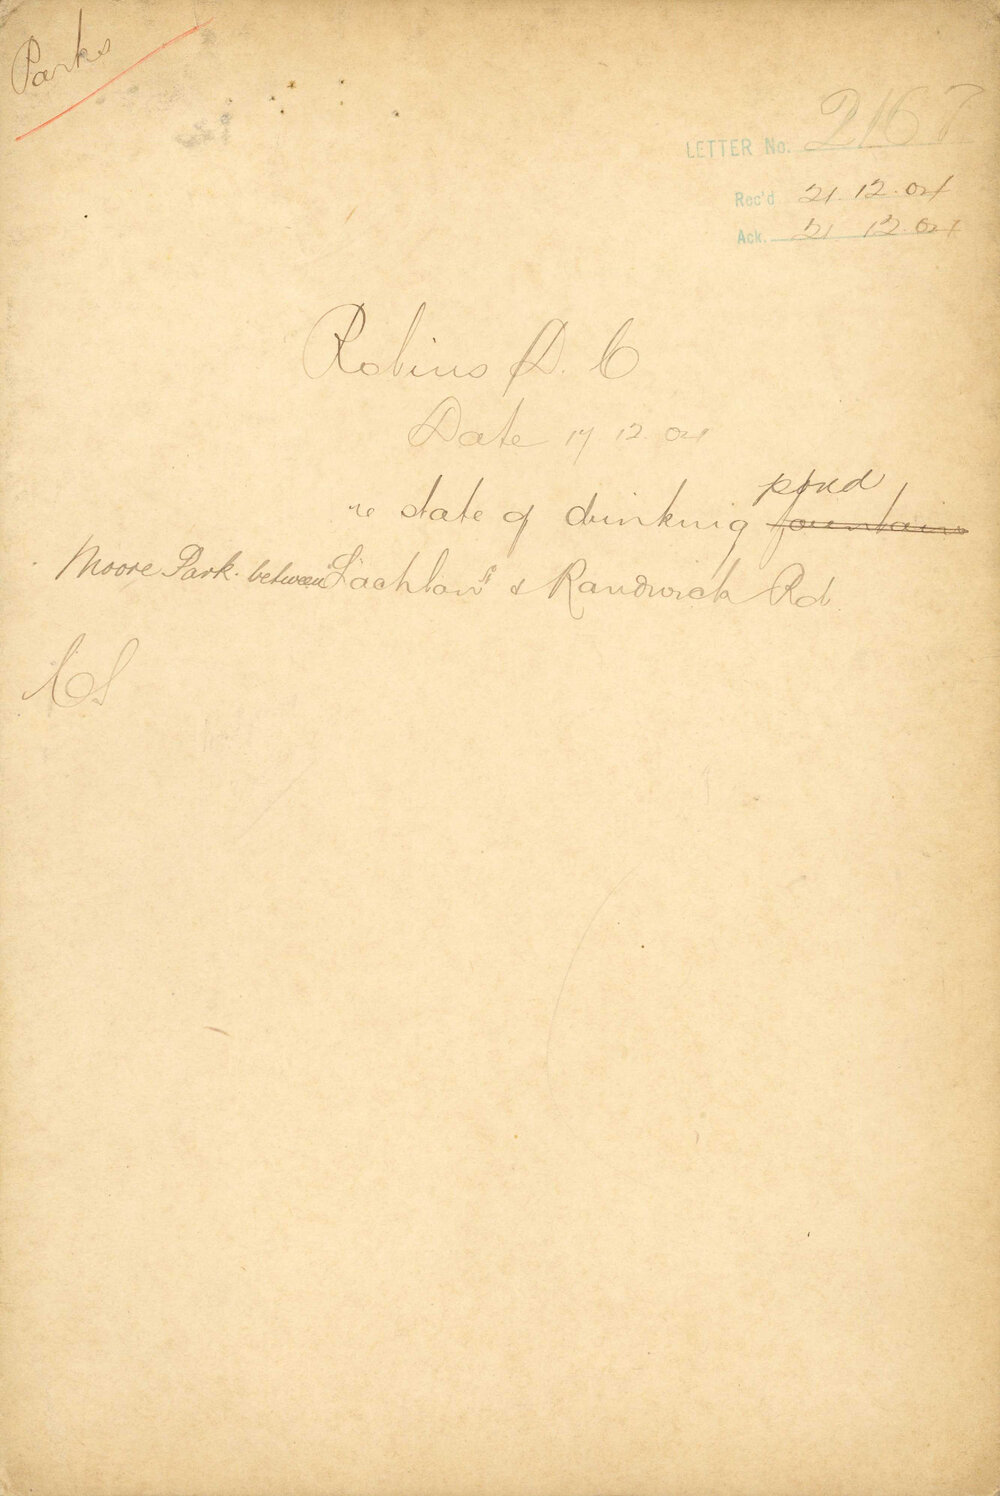 Parks
LETTER No. 2167
Rec'd 21.12.04
Ack. 21 12.04
Robins D. C
Date 17.12.04
re state of drinking fountain pond
Moore Park between Lachlan St & Randwick Rd